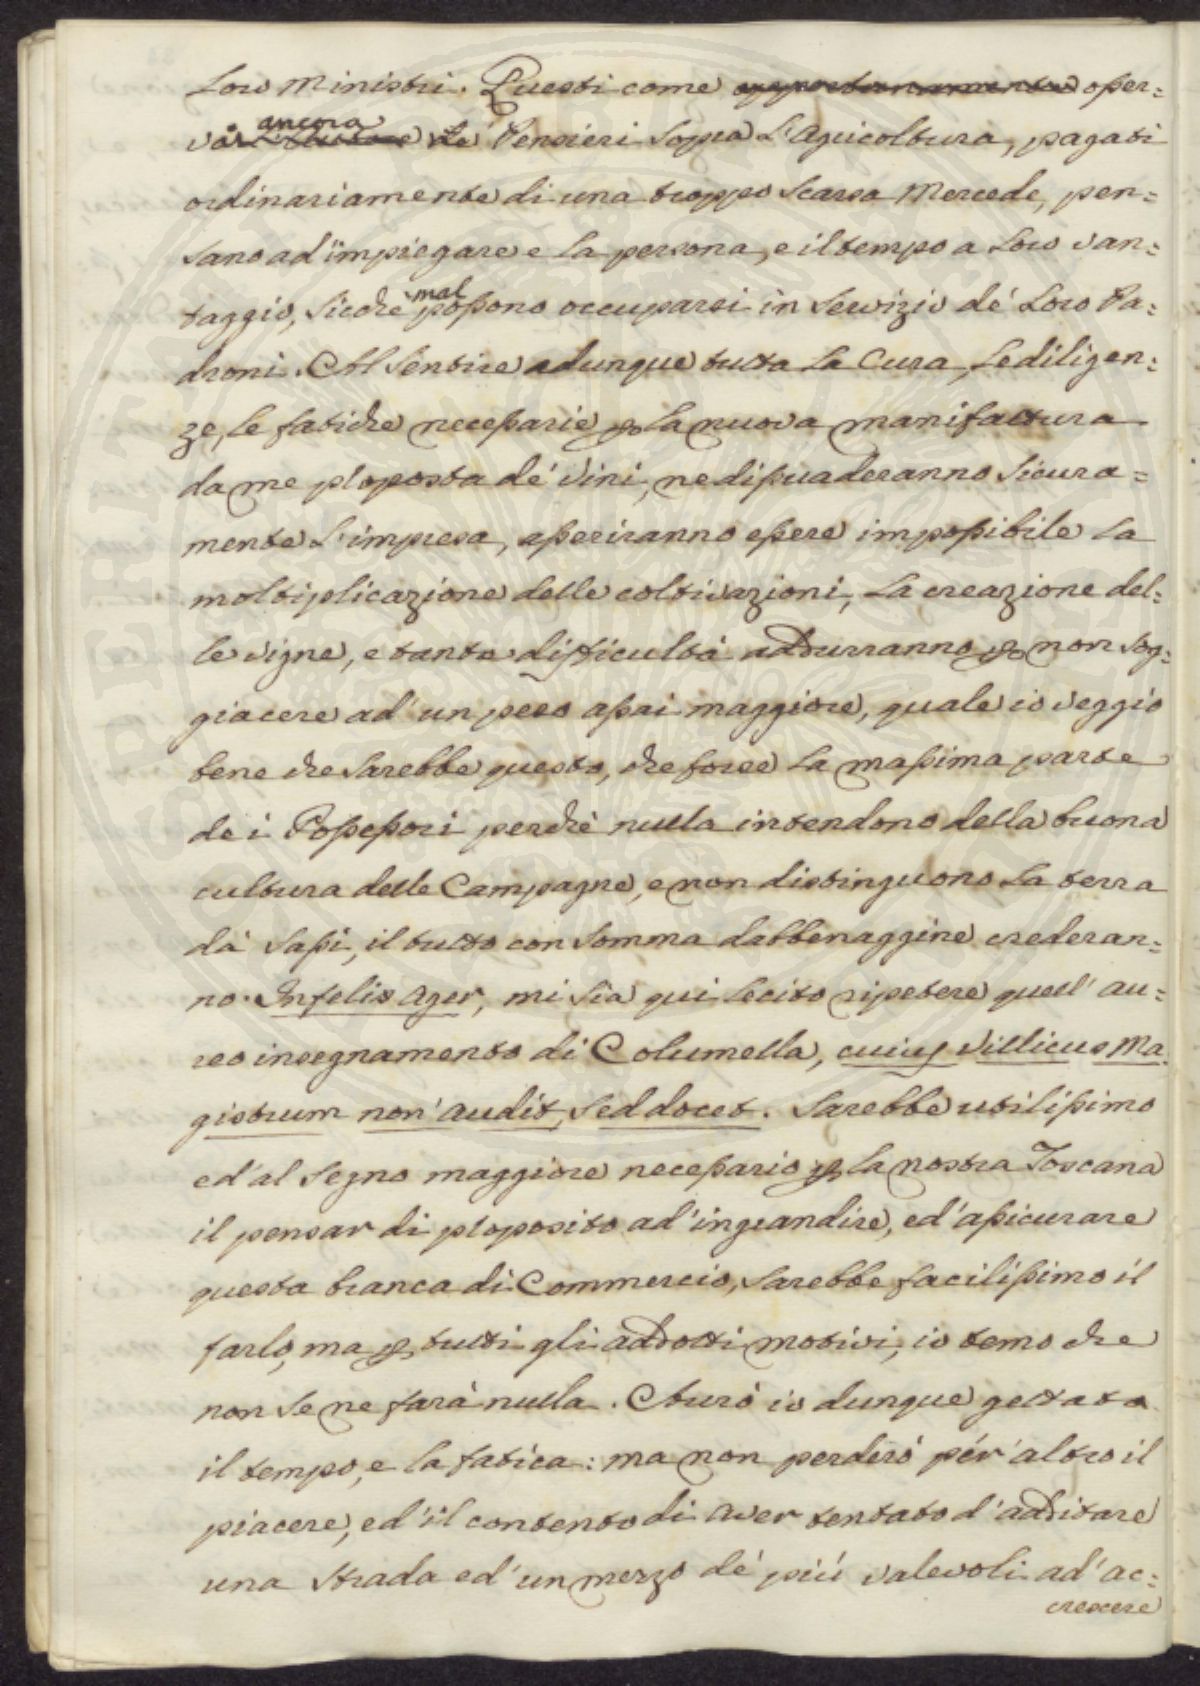 Loro Ministri. Questi come opportunamente osser=
va ancora Le Pensieri Sopra L'Agricoltura, pagati
ordinariamente di una troppo Scarsa Mercede, pen=
sano ad impiegare e la persona, e il tempo a Loro van=
taggio, Sicchè mal possono occuparsi in Servizio dé Loro Pa=
droni. Al Sentire adunque tutta la Cura, Le diligen=
ze, le fatiche necessarie p la nuova manifattura
da me proposta dé Vini, ne dissuaderanno Sicura=
mente L'impresa, asseriranno essere impossibile La
moltiplicazione delle coltivazioni, La creazione del=
le vigne, e tante difficultà addurranno p non sog=
giacere ad' un peso assai maggiore, quale io veggio
bene che Sarebbe questo, che forse La massima parte
dei Possessori perchè nulla intendono della buona
cultura delle Campagne, e non distinguono La terra
dà Sassi, il tutto con Somma dabbenaggine crederan=
no. Infelix Ager, mi Sia qui Lecito ripetere quell' au=
reo insegnamento di Columella, cuius Villicus Ma=
gistrum non' audit, Sed docet. Sarebbe utilissimo
ed' al Segno maggiore necessario p la nostra Toscana
il pensar di proposito ad' ingrandire, ed' assicurare
questa branca di Commercio, Sarebbe facilissimo il
farlo, ma p tutti gli addotti motivi, io temo che
non Se ne farà nulla. Avrò io dunque gettato
il tempo, e la fatica: ma non perderò pér' altro il
piacere, ed' il contento di aver tentato d'additare
una Strada ed' un mezzo dé più valevoli ad' ac=
crescere